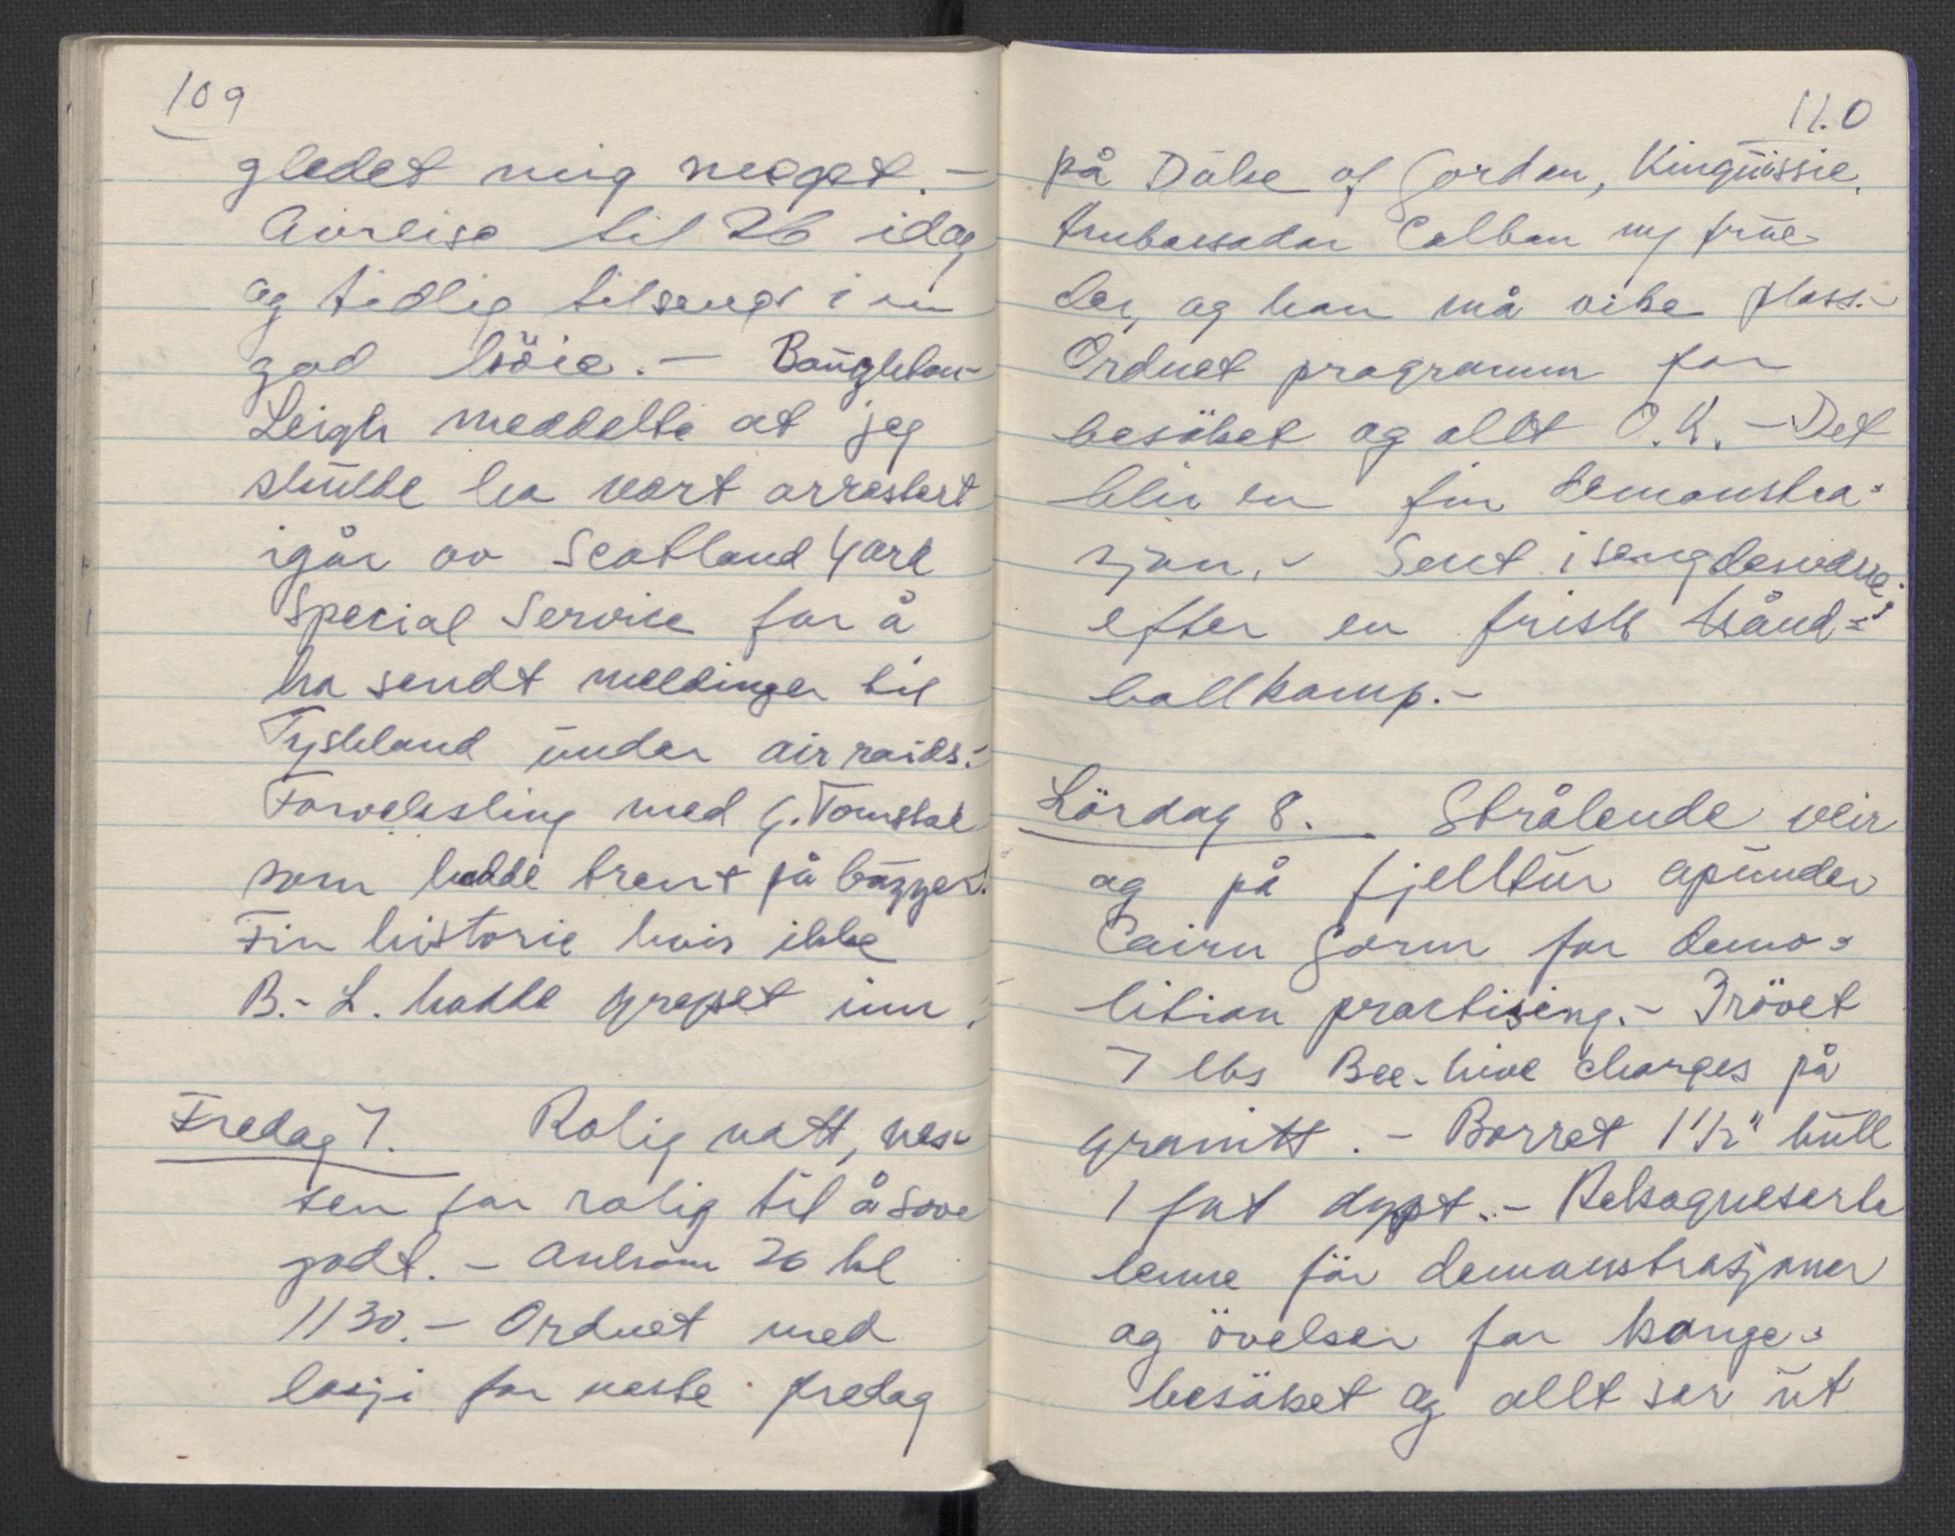 109
gledet mig meget. -
Avreise til 26 idag
og tidlig tilsengs i en
god köie. - Boughton-
Leigh meddelte at jeg
skulde ha vært arrestert
igår av Scotland Yard
Special Service for å
ha sendt meldinger til
Tyskland under air raids. -
Forveksling med G. Tomstad
som hadde trent på buzzer!
Fin historie hvis ikke
B.- L. hadde grepet inn.
Fredag 7. Rolig natt, nes-
ten for rolig til å sove
godt. - Ankom 26 kl
1130. - Ordnet med
losji for neste fredag
110
på Duke of Gordon, Kingussie.
Ambassadør Colban og frue
der, og han må vike plass. -
Ordnet programm for
besöket og allt O.K. - Det
blir en fin demonstra-
sjon. - Sent iseng desværre
efter en frisk hånd-
ballkamp. -
Lördag 8. Strålende veir
og på fjelltur opunder
Cairn Gorm for demo-
lition practising. - Prövet
7 lbs Bee-hive charges på
granitt. - Borret 1 1/2" hull
1 fot dypt. -
lenne för demonstrasjoner
og övelser for konge-
besöket og allt ser ut